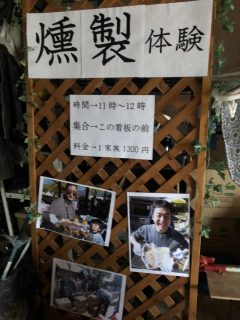 燻製体験
時間→11時～12時
集合→この看板の前
料金→1家族1300円